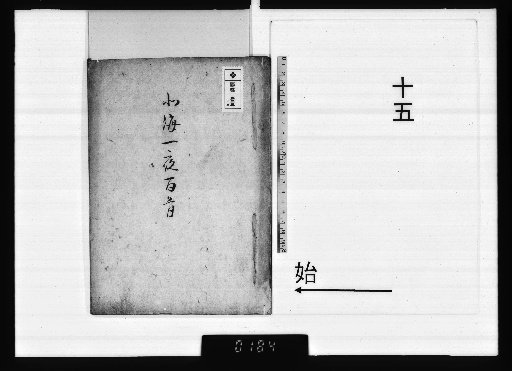 十五
始
海一夜百首
0184